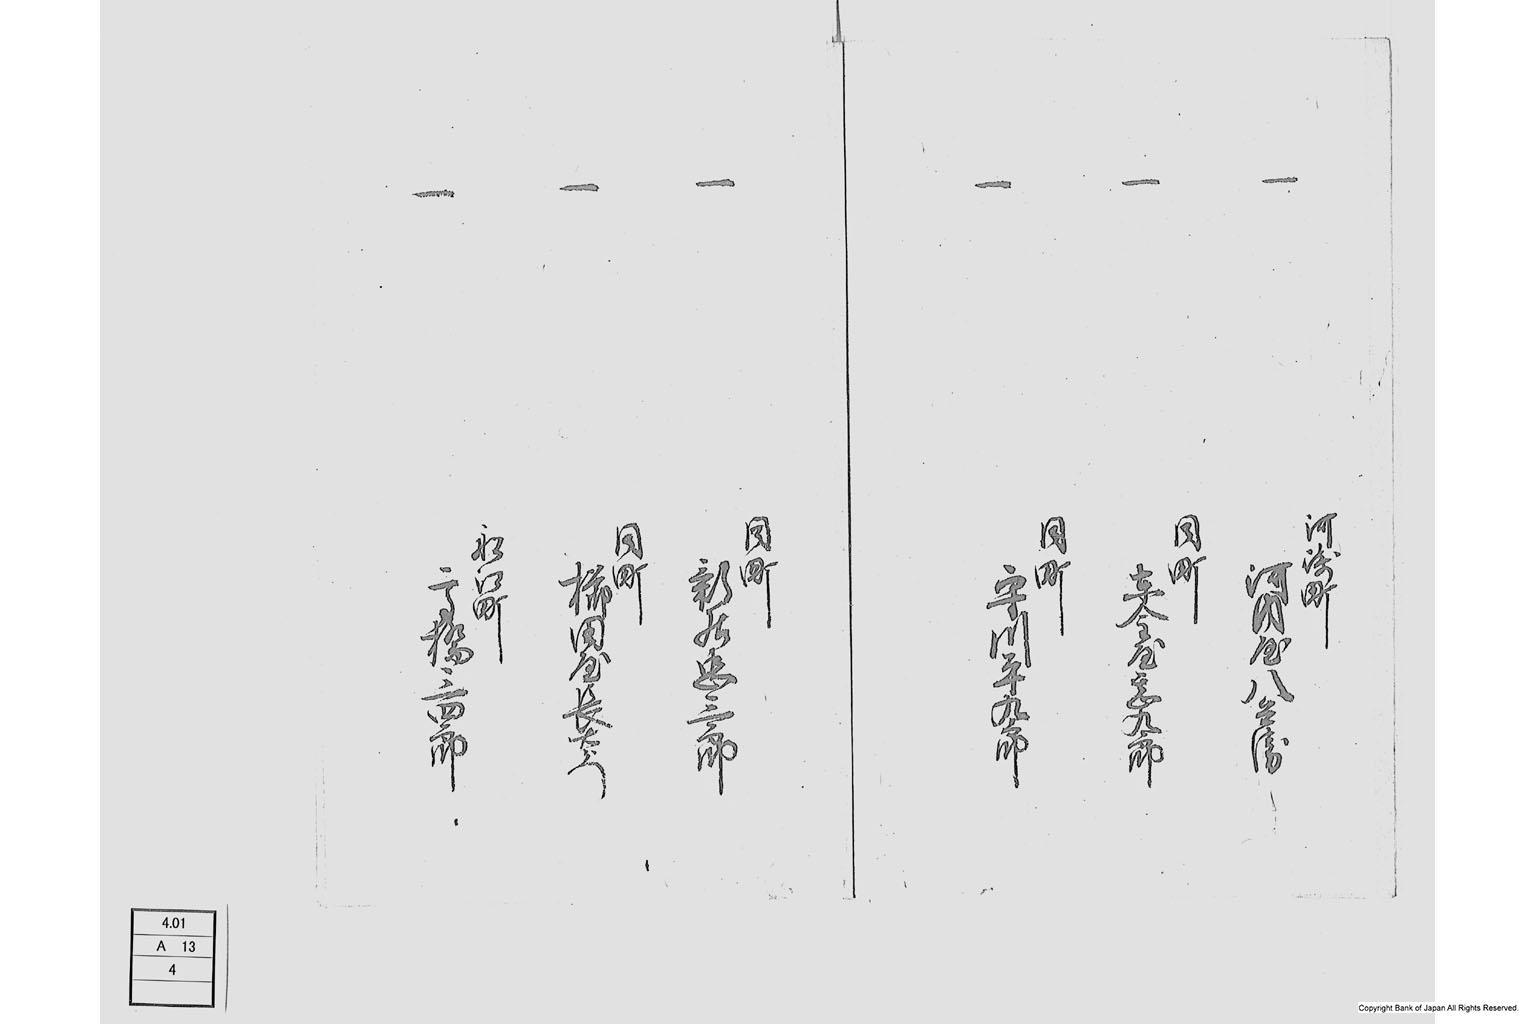 一
河崎町
河内屋八兵衛
一
同町
屋
九郎
一
同町
宇川平九郎
一
同町
新屋忠三郎
一
同町
櫛田屋長左衛門
一
町
二橋三四郎
4.01
A 13
4
Copyright Bank of Japan All Rights Reserved.